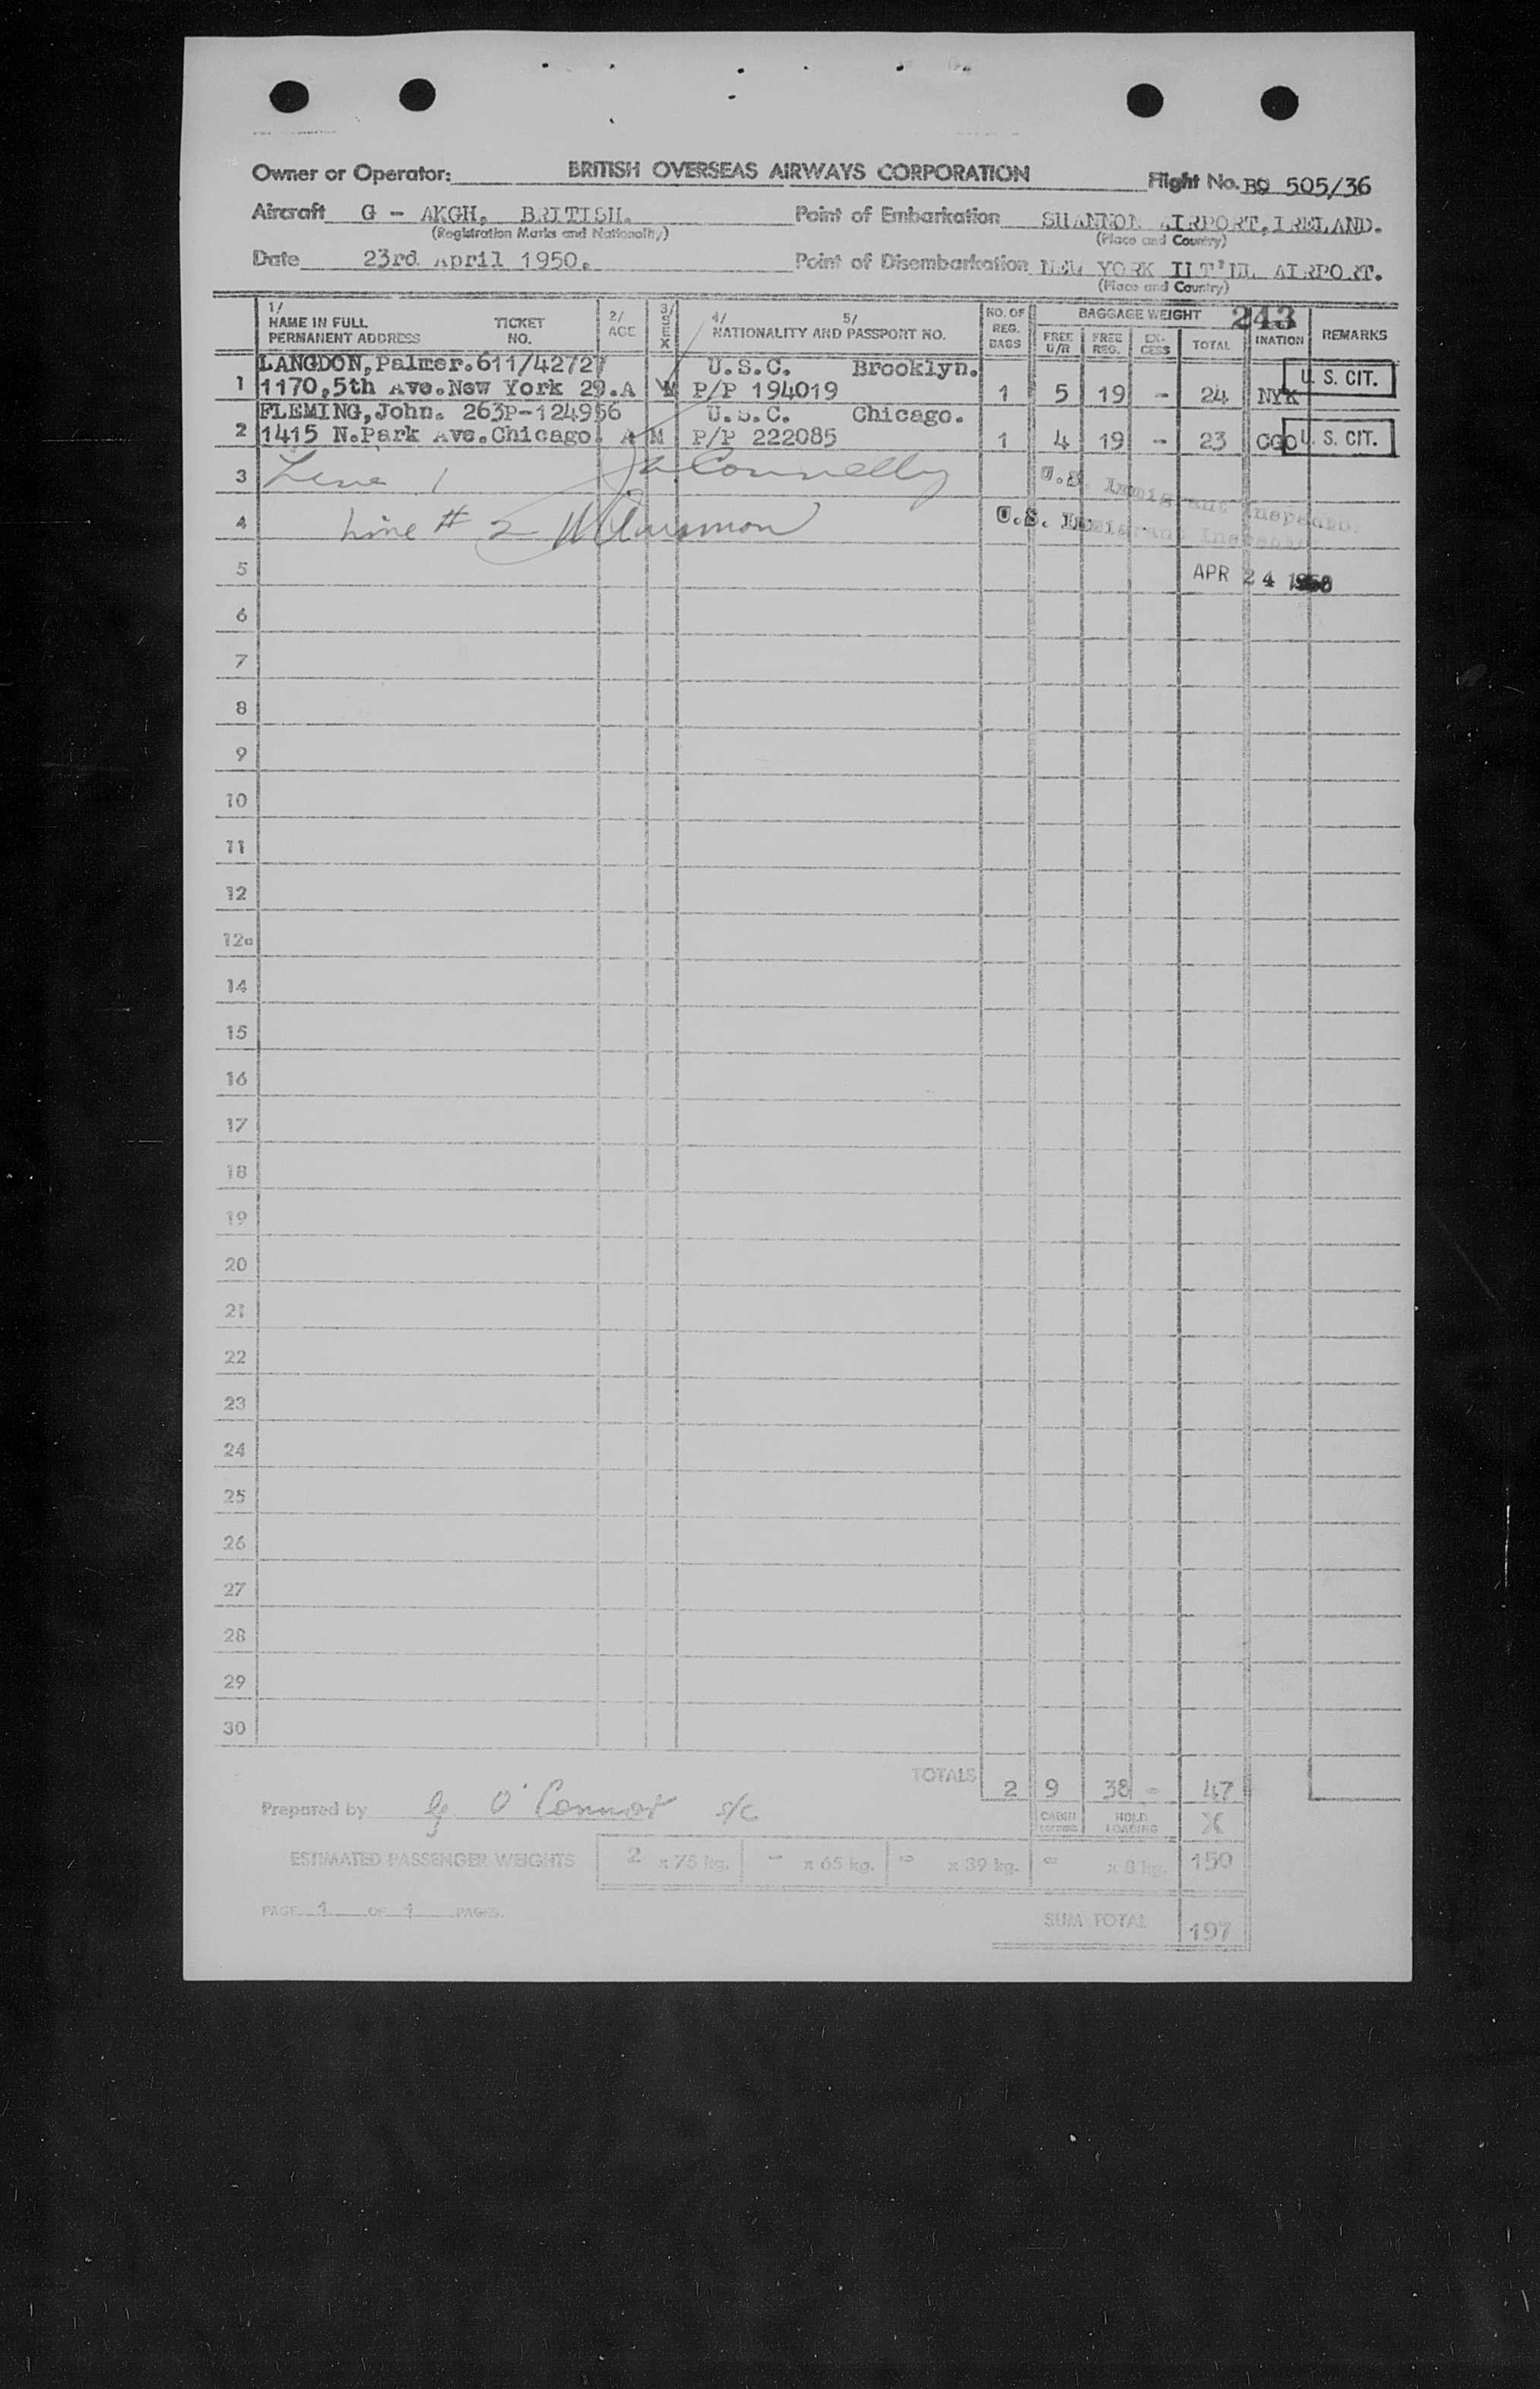 Owner or Operator: BRITISH OVERSEAS AIRWAYS CORPORATION Flight No. BO 505/36
Aircraft G - AKGH. BRITISH. Point of Embarkation SHANNON AIRPORT, IRELAND.
(Registration Marks and Nationality) (Place and Country)
Date 23rd April 1950. Point of Disembarkation NEW YORK INT'NL AIRPORT.
(Place and Country)
1/ NAME IN FULL PERMANENT ADDRESS TICKET NO. 2/ AGE 3/ SEX 4/ 5/ NATIONALITY AND PASSPORT NO. NO. OF REG. BAGS BAGGAGE WEIGHT FREE U/R FREE REG. EX-CESS TOTAL 243 INATION REMARKS
LANGDON, Palmer. 611/42727 U.S.C. Brooklyn.
1 1170, 5th Ave. New York 29. A M P/P 194019 1 5 19 - 24 NYK U. S. CIT.
FLEMING, John. 263P-124956 U.S.C. Chicago.
2 1415 N. Park Ave. Chicago. A M P/P 222085 1 4 19 - 23 CGO U. S. CIT.
3 Line 1 Connelly U.S. Immigrant Inspector
4 Line # 2 U.S. Immigrant Inspector
5 APR 24 1950
6
7
8
9
10
11
12
12a
14
15
16
17
18
19
20
21
22
23
24
25
26
27
28
29
30
TOTALS 2 9 38 - 47
Prepared by G. O'Connor S/C CABIN LOADING HOLD LOADING X
ESTIMATED PASSENGER WEIGHTS 2 x 75 kg. - x 65 kg. - x 39 kg. - x 8 kg. 150
PAGE 1 OF 1 PAGES. SUM TOTAL 197